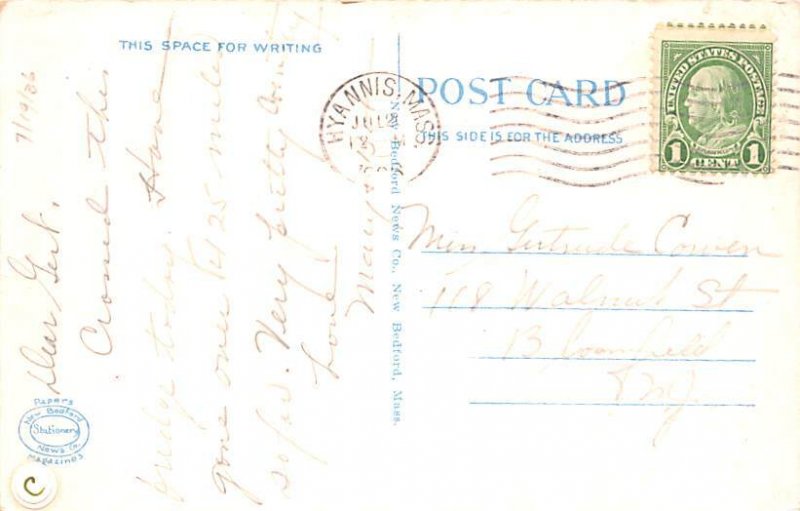 THIS SPACE FOR WRITING
7/19/26
Dear Gert,
Crossed this
bridge today. Have
gone over 125 miles
so far. Very pretty
Love
Mary
PAPERS
New Bedford
Stationery
News Co.
MAGAZINES
C
New Bedford News Co., New Bedford, Mass.
HYANNIS, MASS.
JUL
POST CARD
THIS SIDE IS FOR THE ADDRESS
UNITED STATES POSTAGE
1 CENT 1
Miss Gertrude Cowen
118 Walnut St
Bloomfield
N.J.